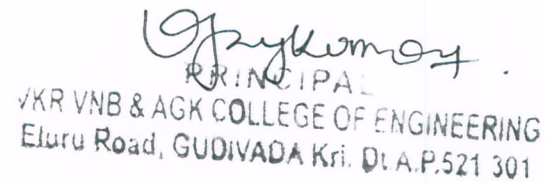 PRINCIPAL
VKR VNB & AGK COLLEGE OF ENGINEERING
Eluru Road, GUDIVADA Kri. Dt A.P.521 301